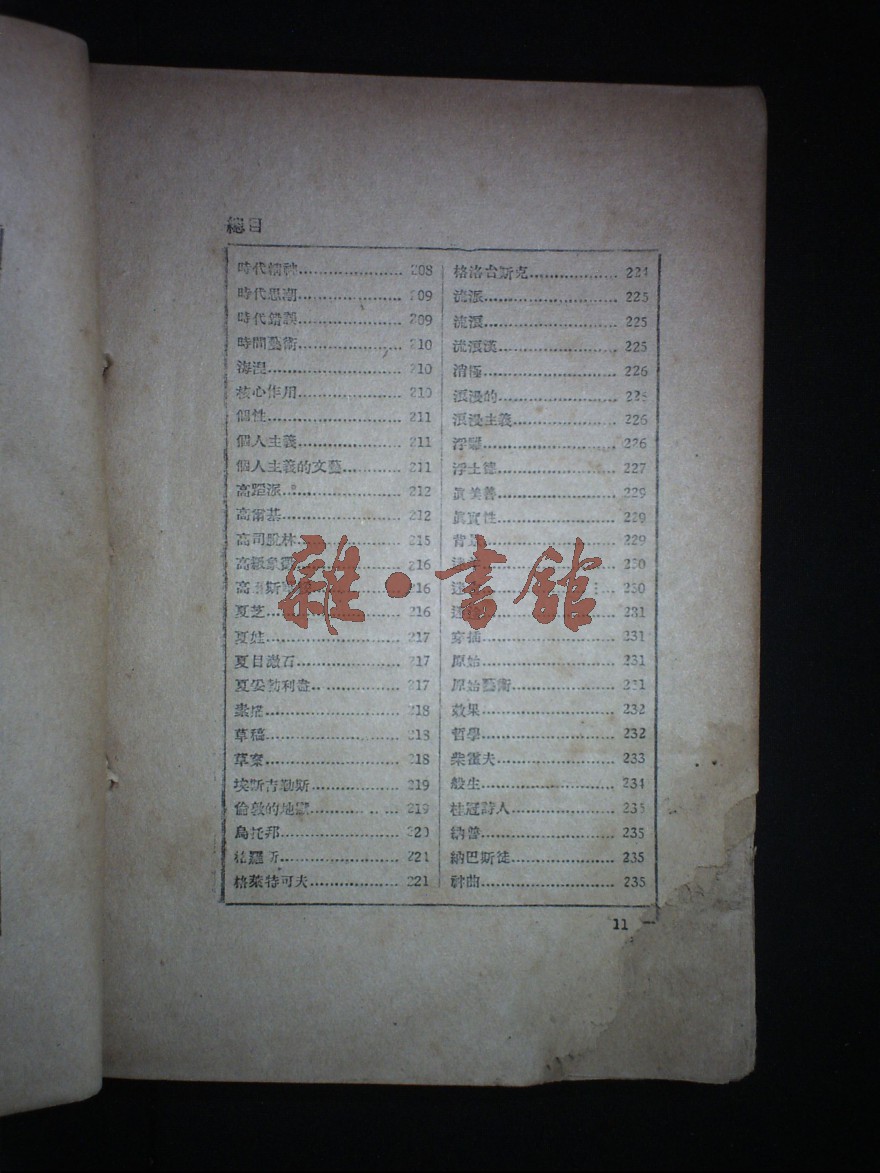 總目
時代精神 208
時代思潮 209
時代錯誤 209
時間藝術 210
海涅 210
核心作用 210
個性 211
個人主義 211
個人主義的文藝 211
高蹈派 212
高爾基 212
高司脫林 215
高級象徵 216
高 斯 216
夏芝 216
夏娃 217
夏目漱石 217
夏妥勃利盎 217
素描 218
草稿 218
草案 218
埃斯吉勒斯 219
倫敦的地獄 219
烏托邦 220
桂羅 221
格萊特可夫 221
格洛台斯克 224
流派 225
流浪 225
流浪漢 225
消極 226
浪漫的 226
浪漫主義 226
浮雕 226
浮士德 227
眞美善 229
眞實性 229
背景 229
230
230
231
穿插 231
原始 231
原始藝術 231
效果 232
哲學 232
柴霍夫 233
般生 234
桂冠詩人 235
納普 235
納巴斯徒 235
神曲 235
11
雜·書館